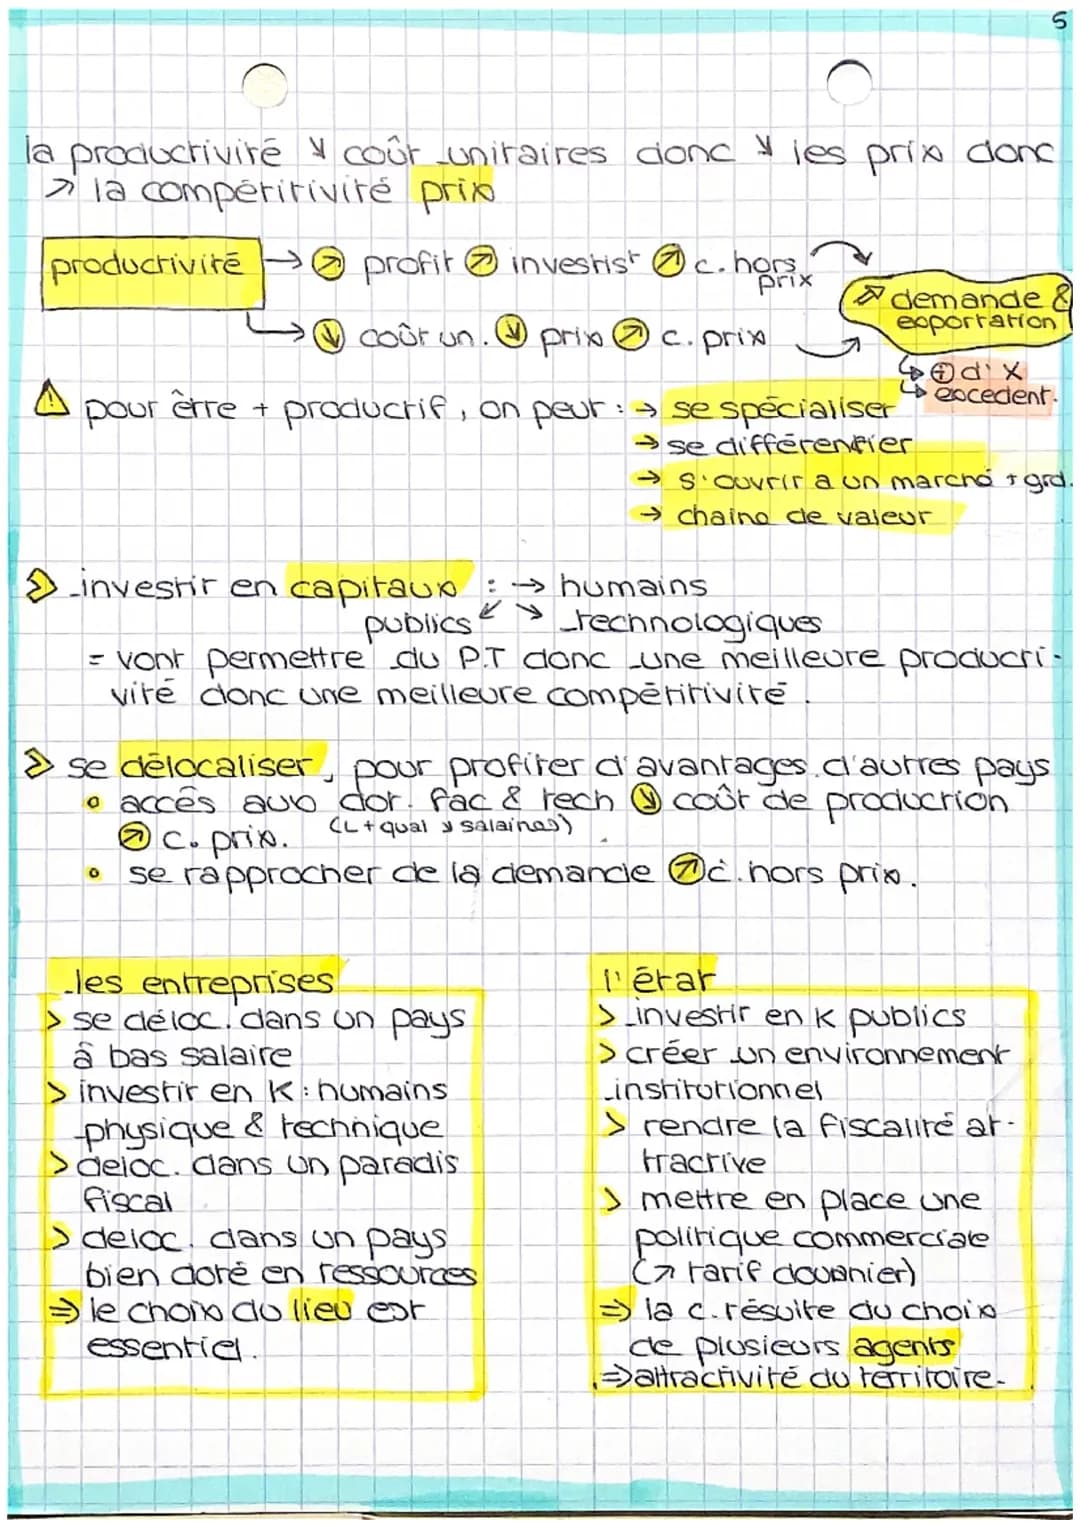 5
la productivité ↘ coût unitaires donc ↘ les prix donc
↗ la compétitivité prix
productivité → ↗ profit ↗ investist ↗ c. hors prix
↗ demande & exportation
→ ↘ coût un. ↘ prix ↗ c. prix
↳ ⊕ d' X
↳ excedent.
⚠ pour être + productif, on peut : → se spécialiser
→ se différentier
→ s'ouvrir a un marché + grd.
→ chaine de valeur
» investir en capitaux : → humains
publics ↙ ↘ technologiques
= vont permettre du P.T donc une meilleure producti-
vité donc une meilleure compétitivité.
» se délocaliser, pour profiter d'avantages d'autres pays
• accés aux dot. fac & tech ↘ coût de production
↗ c. prix. (L + qual ↘ salaires)
• se rapprocher de la demande ↗ c. hors prix.
les entreprises
> se déloc. dans un pays
à bas salaire
> investir en K : humains
physique & technique
> deloc. dans un paradis
fiscal
> deloc. dans un pays
bien doté en ressources
⇒ le choix du lieu est
essentiel.
l'état
> investir en K publics
> créer un environnement
institutionnel
> rendre la fiscalité at-
tractive
> mettre en place une
politique commerciale
(↗ tarif douanier)
⇒ la c. résulte du choix
de plusieurs agents
⇒ attractivité du territoire.